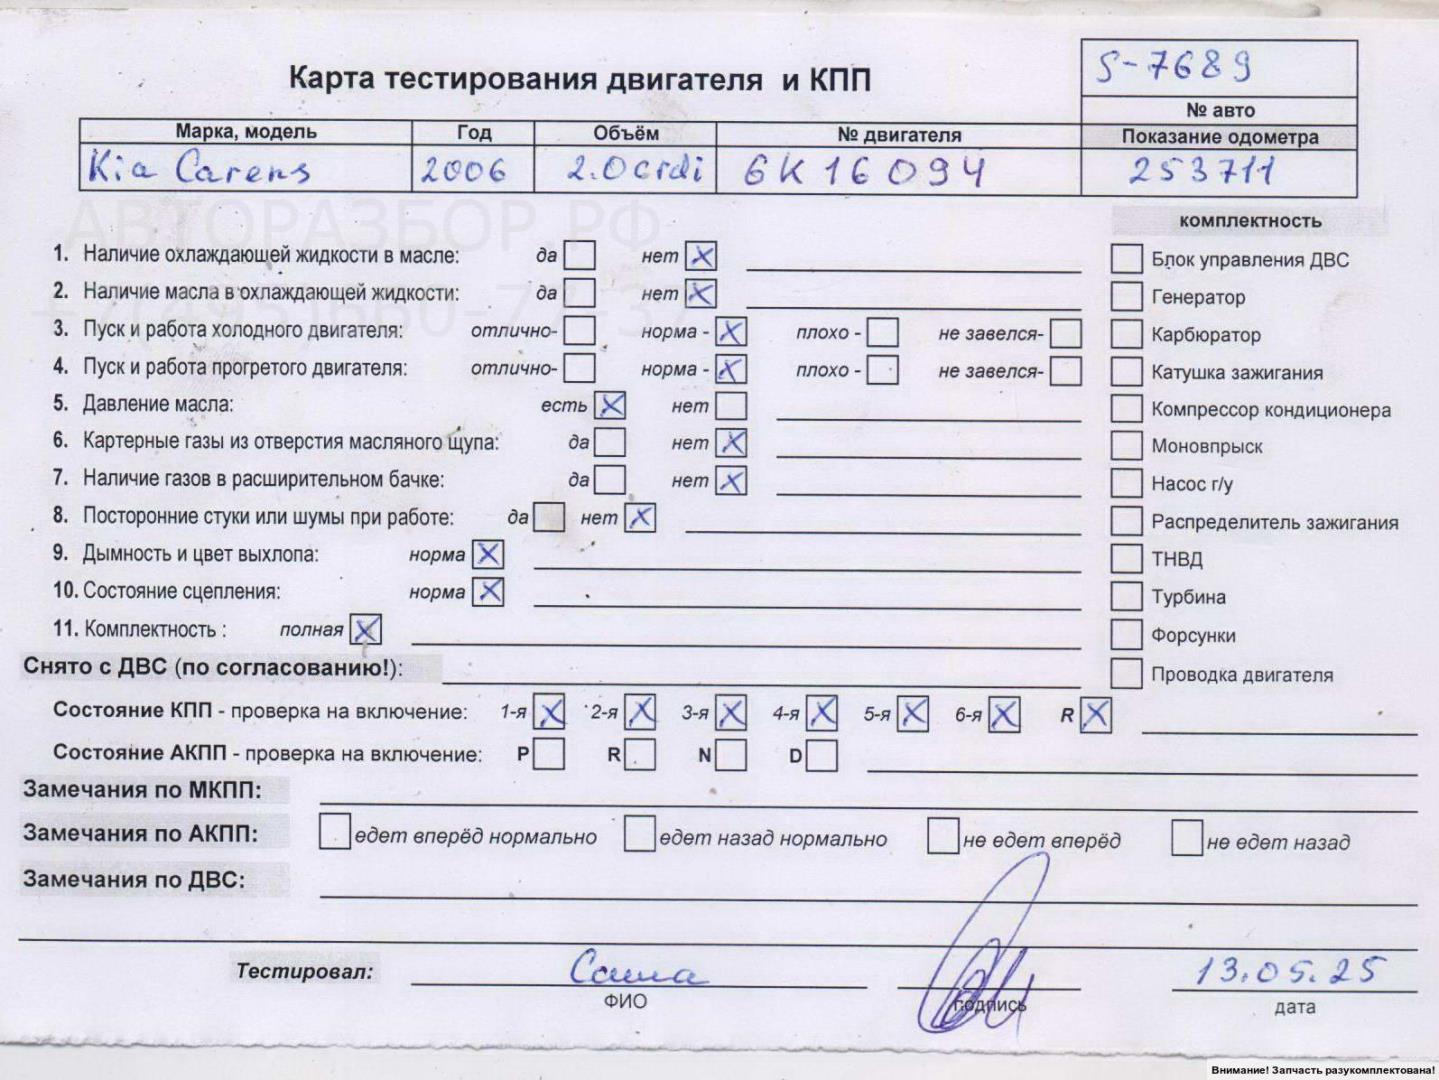 Карта тестирования двигателя и КПП
S-7689
№ авто
Марка, модель Год Объём № двигателя Показание одометра
Kia Carens 2006 2.0crdi 6K16094 253711
АВТОРАЗБОР.РФ
комплектность
1. Наличие охлаждающей жидкости в масле: да нет X Блок управления ДВС
2. Наличие масла в охлаждающей жидкости: да нет X Генератор
+7(495)660-77-37
3. Пуск и работа холодного двигателя: отлично- норма - X плохо - не завелся- Карбюратор
4. Пуск и работа прогретого двигателя: отлично- норма - X плохо - не завелся- Катушка зажигания
5. Давление масла: есть X нет Компрессор кондиционера
6. Картерные газы из отверстия масляного щупа: да нет X Моновпрыск
7. Наличие газов в расширительном бачке: да нет X Насос г/у
8. Посторонние стуки или шумы при работе: да нет X Распределитель зажигания
9. Дымность и цвет выхлопа: норма X ТНВД
10. Состояние сцепления: норма X Турбина
11. Комплектность : полная X Форсунки
Снято с ДВС (по согласованию!): Проводка двигателя
Состояние КПП - проверка на включение: 1-я X 2-я X 3-я X 4-я X 5-я X 6-я X R X
Состояние АКПП - проверка на включение: P R N D
Замечания по МКПП:
Замечания по АКПП: едет вперёд нормально едет назад нормально не едет вперёд не едет назад
Замечания по ДВС:
Тестировал: Саша 13.05.25
ФИО подпись дата
Внимание! Запчасть разукомплектована!